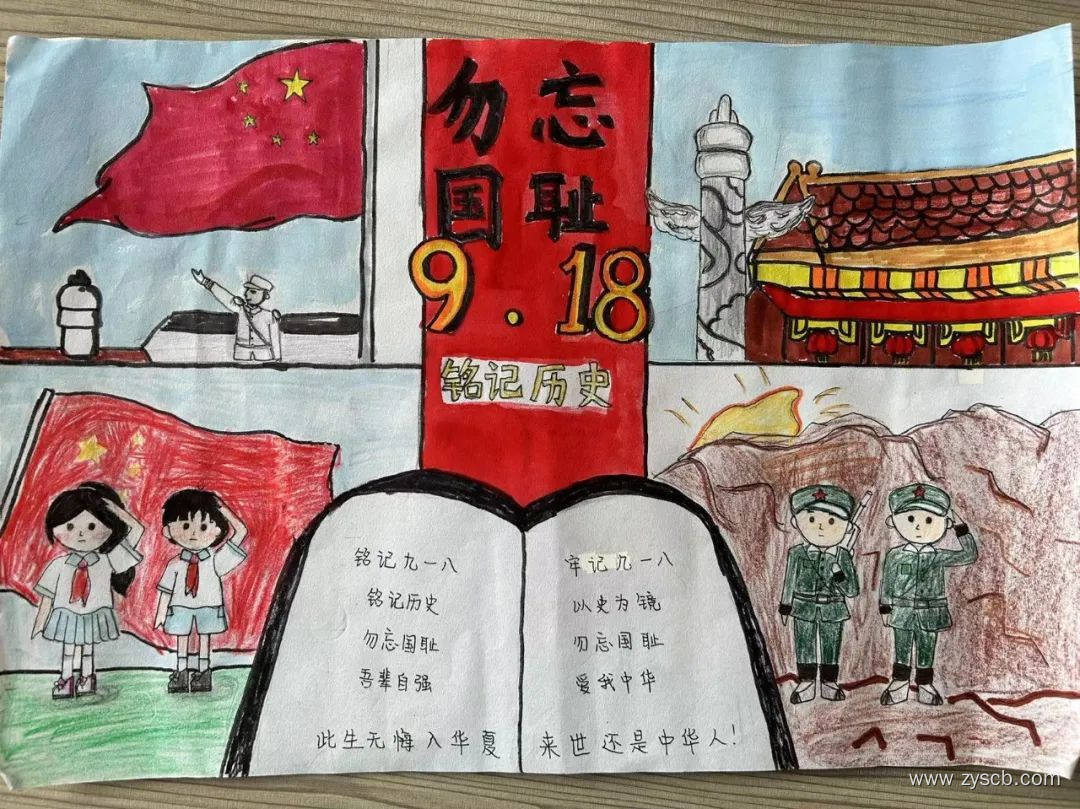 勿忘
国耻
9.18
铭记历史
铭记九一八
铭记历史
勿忘国耻
吾辈自强
此生无悔入华夏
牢记九一八
以史为镜
勿忘国耻
爱我中华
来世还是中华人!
www.zyscb.com